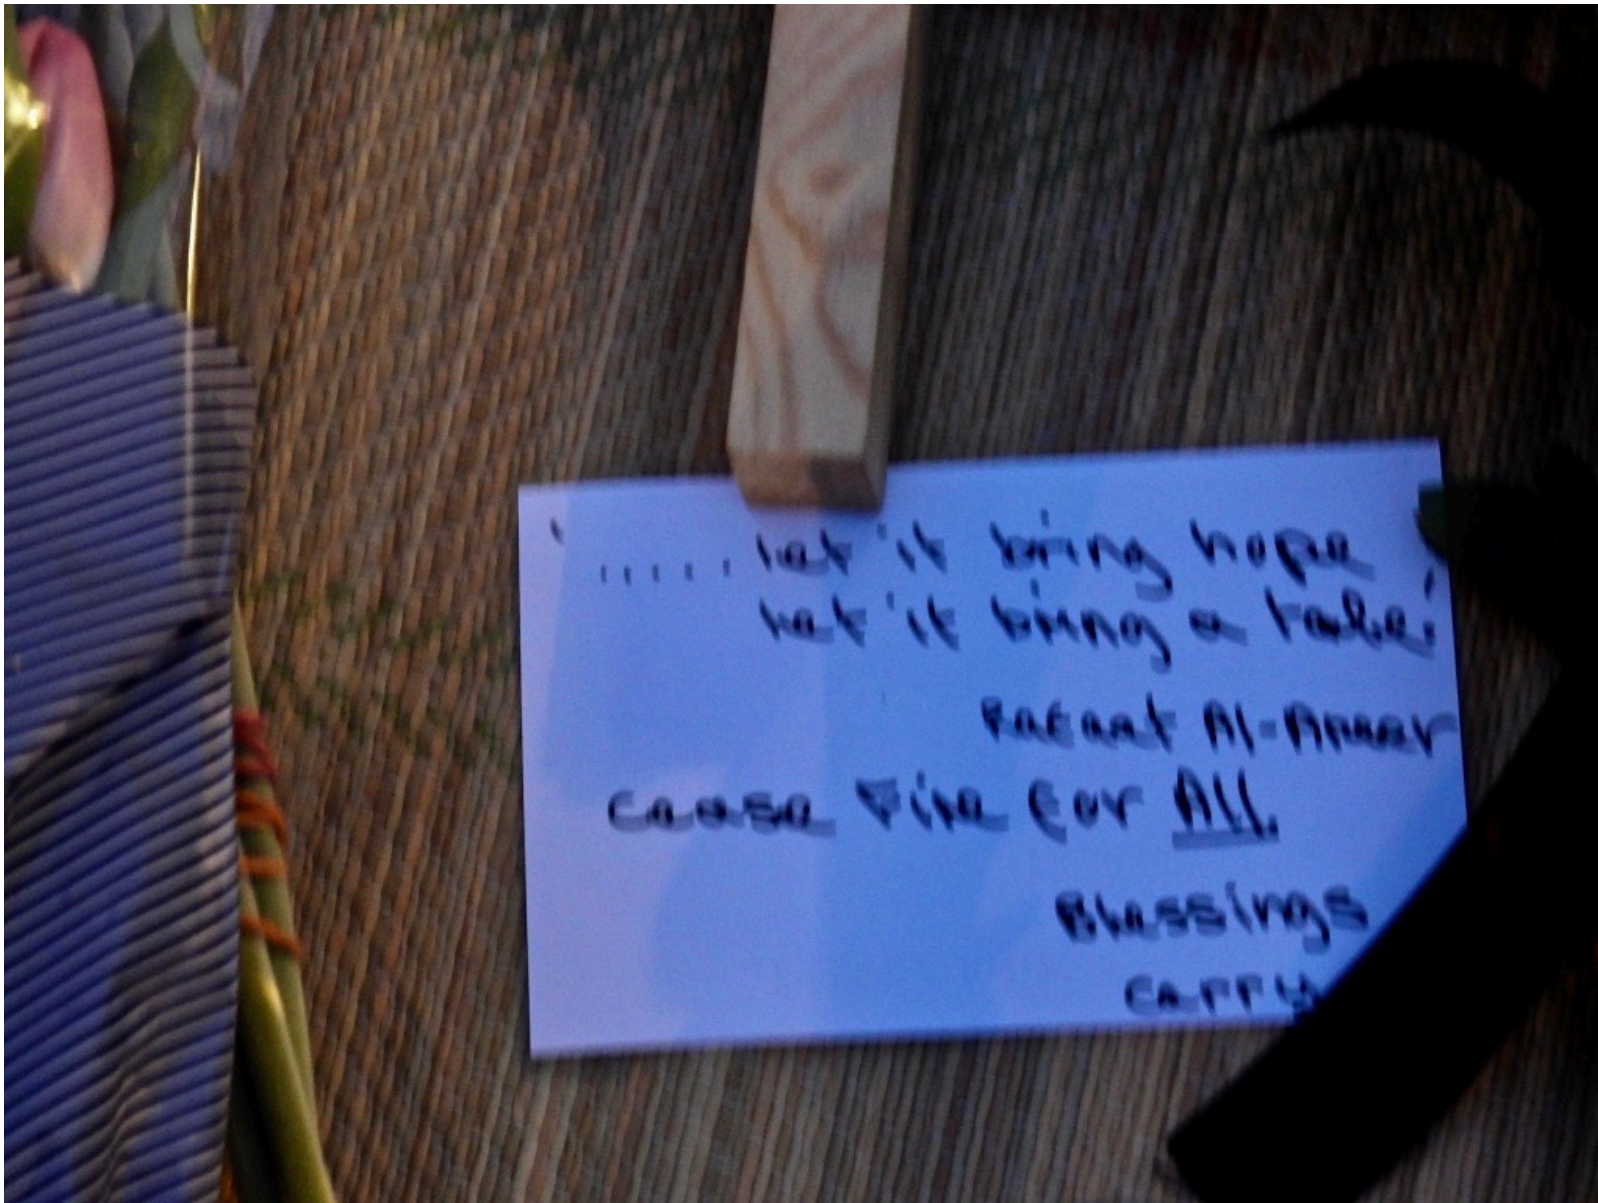 ' ..... let it bring hope
let it bring a tale!
Refaat Al-Areer
Cease Fire for All
Blessings
Carry